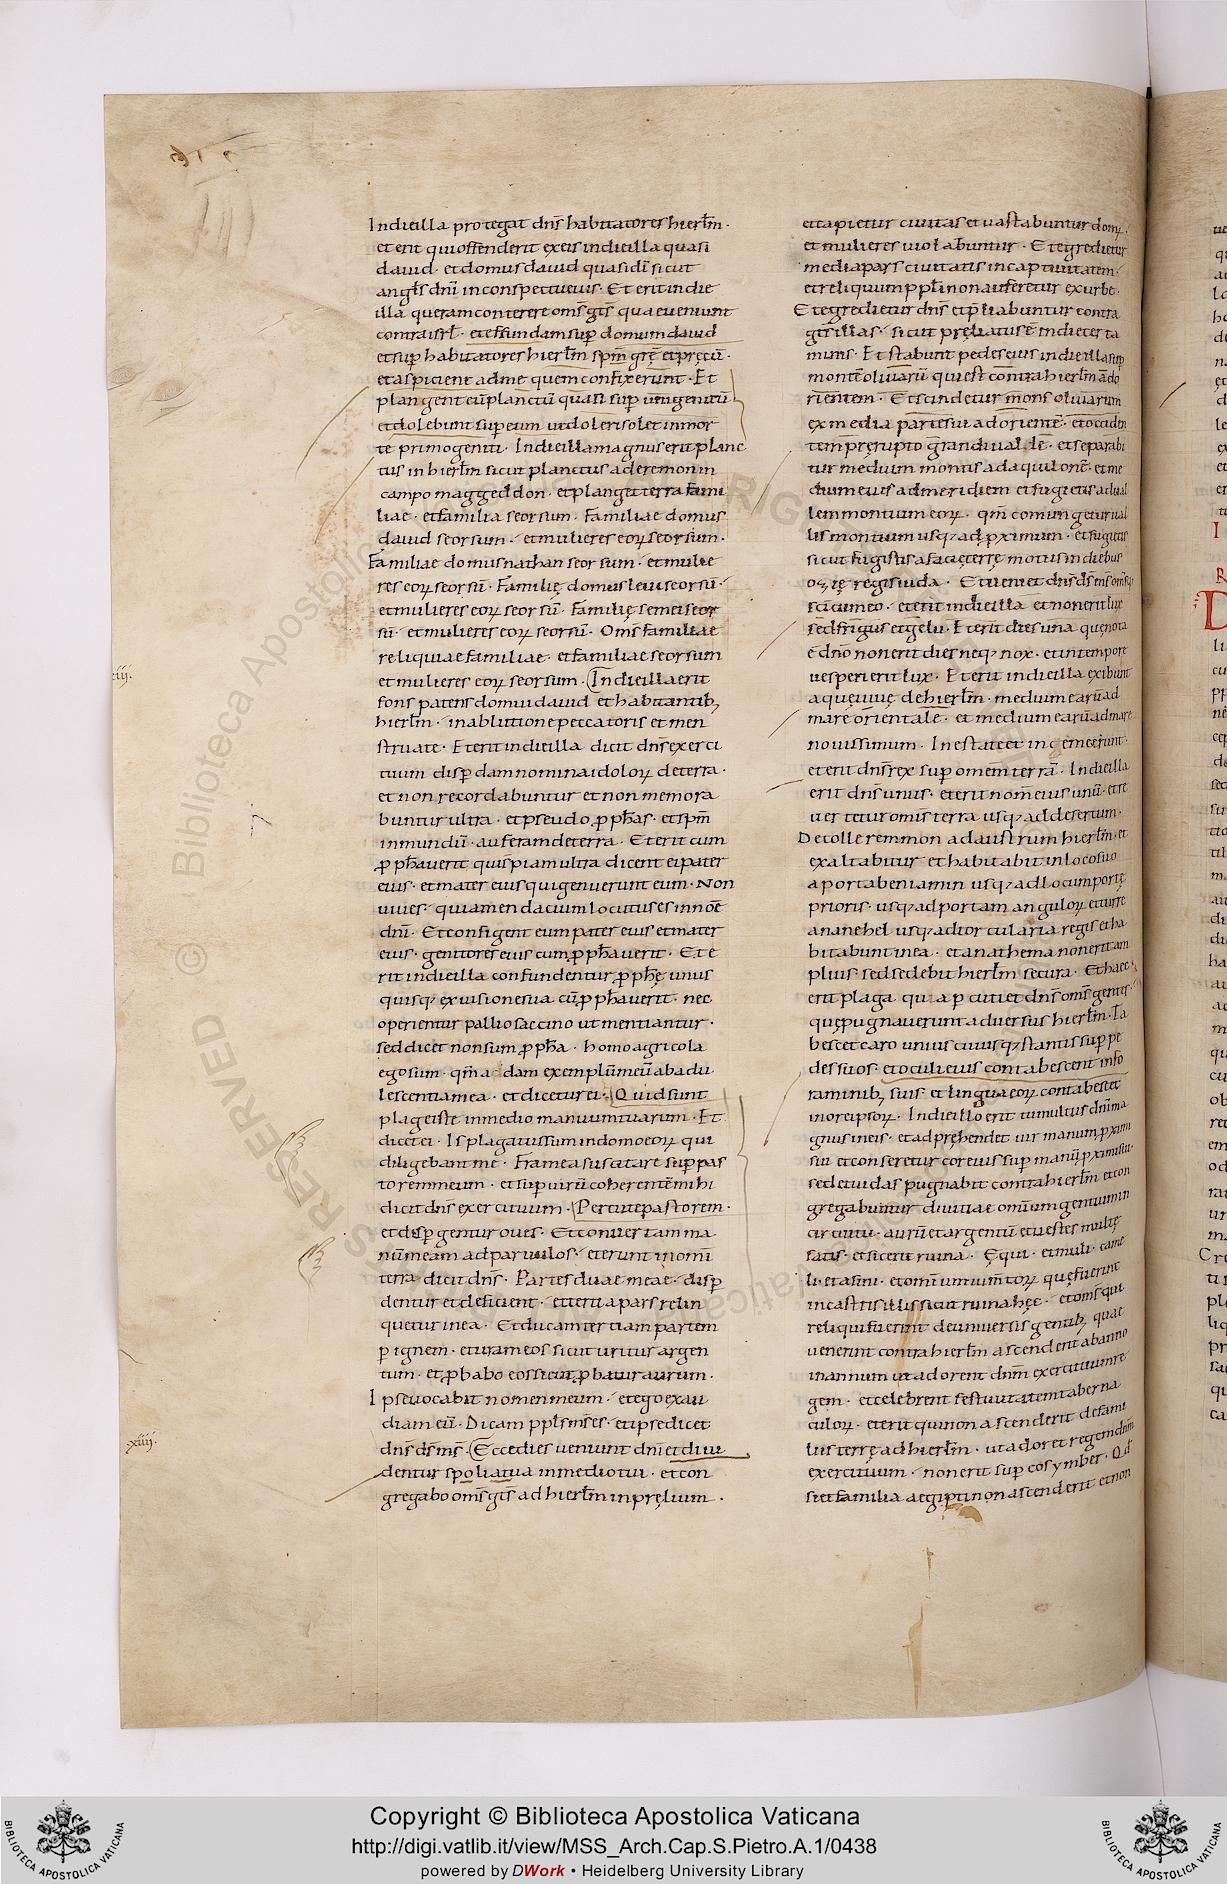 In die illa proteget dn̄s habitatores hierl̄m ·
et erit qui offenderit ex eis in die illa quasi
dauid · et domus dauid quasi dī sicut
angl̄s dnī in conspectu eius · Et erit in die
illa queram conterere om̄s gt̄s quae veniunt
contra isrl̄ · et effundam sup̄ domum dauid
et sup̄ habitatores hierl̄m sp̄m grę̄ et pręcū ·
et aspicient ad me quem confixerunt · Et
plangent eū planctū quasi sup̄ unigenitū
et dolebunt super eum ut doleri solet in mor
te primogeniti · In die illa magnus erit planc
tus in hierl̄m sicut planctus aderemon in
campo maggeddon · et planget terra fami
liae · et familia seorsum · Familiae domus
dauid seorsum · et mulieres eoꝝ seorsum ·
Familiae domus nathan seorsum · et mulie
res eoꝝ seorsū · Familię domus leui seorsū ·
et mulieres eoꝝ seorsū · Familię semei seor
sū · et mulieres eoꝝ seorsū · Om̄s familiae
reliquiae familiae · et familiae seorsum
et mulieres eoꝝ seorsum · In die illa erit
fons patens domui dauid et habitantib;
hierl̄m · in ablutione peccatoris et men
struate · Et erit in die illa dicit dn̄s exerci
tuum disp̄dam nomina idoloꝝ de terra ·
et non recordabuntur et non memora
buntur ultra · et pseudo ꝓphās · et sp̄m
inmundū · auferam de terra · Et erit cum
ꝓphauerit quispiam ultra dicent ei pater
eius · et mater eius qui genuerunt eum · Non
uiues · quia mendacium locutus es in noē
dnī · Et configent eum pater eius et mater
eius · genitores eius cum ꝓphauerit · Et e
rit in die illa confundentur ꝓphę̄ unus
quisq; ex uisione sua cū ꝓphauerit · nec
operientur pallio saccino ut mentiantur ·
sed dicet non sum ꝓphā · homo agricola
ego sum · qm̄ adam exemplū meū ab adu
lescentia mea · et dicetur ei · Quid sunt
plage iste in medio manuum tuarum · Et
dicet ei · Is plagatus sum in domo eoꝝ qui
diligebant me · Framea suscitare sup̄ pas
torem meum · et sup̄ uirū coherentē mihi
dicit dn̄s exercituum · Percute pastorem ·
et disp̄gentur oues · Et conuertam ma
nū meam ad paruulos · et erunt in omī
terra dicit dn̄s · Partes duae meae · disp̄
dentur et deficient · et tertia pars relin
quetur in ea · Et ducam tertiam partem
ꝑ ignem · et uram eos sicut uritur argen
tum · et ꝓbabo eos sicut ꝓbatur aurum ·
Ipse uocabit nomen meum · et ego exau
diam eū · Dicam ppl̄s m̄s es · et ipse dicet
dn̄s dꝰ m̄s · Ecce dies ueniunt dnī et diui
dentur spolia tua in medio tui · et con
gregabo om̄s gt̄s ad hierl̄m in pręlium ·
et capietur ciuitas et uastabuntur domꝰ
et mulieres uiolabuntur · Et egredietur
media pars ciuitatis in captiuitatem ·
et reliquum ppl̄i non auferetur ex urbe ·
Et egredietur dn̄s et p̄liabuntur contra
gt̄s illas · sicut pręliatus ē in die certa
minis · Et stabunt pedes eius in die illa sup̄
montē oliuarū qui est contra hierl̄m ad o
rientem · Et scindetur mons oliuarum
ex media parte sui ad orientē · et occiden
tem pręrupto grandi ualde · et separabi
tur medium montis ad aquilonē · et me
dium eius ad meridiem et fugietis ad ual
lem montium eoꝝ · qm̄ coniungetur ual
lis montium usq; ad ꝓximum · et fugietis
sicut fugistis a facię terrę motus in diebus
ozię regis iuda · Et ueniet dn̄s dꝰ m̄s om̄sq;
scī cum eo · et erit in die illa et non erit lux
sed frigus et gelu · Et erit dies una quę nota
ē dnō non erit dies neq; nox · et in tempore
uesperi erit lux · Et erit in die illa exibunt
aquę uiuę de hierl̄m · medium earū ad
mare orientale · et medium earū ad mare
nouissimum · In estate et in hieme erunt ·
et erit dn̄s rex sup̄ omem terrā · In die illa
erit dn̄s unus · et erit nom̄ eius unū · et re
uertetur om̄is terra usq; ad desertum ·
De colle remmon ad austrum hierl̄m · et
exaltabitur et habitabit in loco suo
a porta beniamin usq; ad locum portę
prioris · usq; ad portam anguloꝝ et turre
ananehel usq; ad torcularia regis et ha
bitabunt in ea · et anathema non erit am
plius · sed sedebit hierl̄m secura · Et haec
erit plaga qua ꝑcutiet dn̄s om̄s gentes ·
quę pugnauerunt aduersus hierl̄m · Ta
bescet caro unius cuiusq; stantis sup̄ pe
des suos · et oculi eius contabescent in fo
raminib; suis · et lingua eoꝝ contabescet
in ore ipsoꝝ · In die illo erit tumultus dnī ma
gnus in eis · et adprehendet uir manum ꝓximi
sui et conseretur eo eius sup̄ manū ꝓximi sui ·
sed et iudas pugnabit contra hierl̄m et con
gregabuntur diuitiae omnium gentium in
circuitu · aurū et argentū et uestes multę
satis · et sic erit ruina · Equi · et muli · came
li · et asini · et omī iumentoꝝ quę fuerint
in castris illis sicut ruina hęc · et om̄s qui
reliqui fuerint de uniuersis gentib; quae
uenerint contra hierl̄m ascendent ab anno
in annum ut adorent dnm̄ exercituum re
gem · et celebrent festiuitatem taberna
culoꝝ · et erit qui non ascenderit de fami
liis terrę ad hierl̄m · ut adoret regem dnm̄
exercituum · non erit sup̄ eos ymber · Qd̄
si et familia aegipti non ascenderit et non
·xiiii·
Copyright © Biblioteca Apostolica Vaticana
http://digi.vatlib.it/view/MSS_Arch.Cap.S.Pietro.A.1/0438
powered by DWork • Heidelberg University Library
BIBLIOTECA APOSTOLICA VATICANA
BIBLIOTECA APOSTOLICA VATICANA